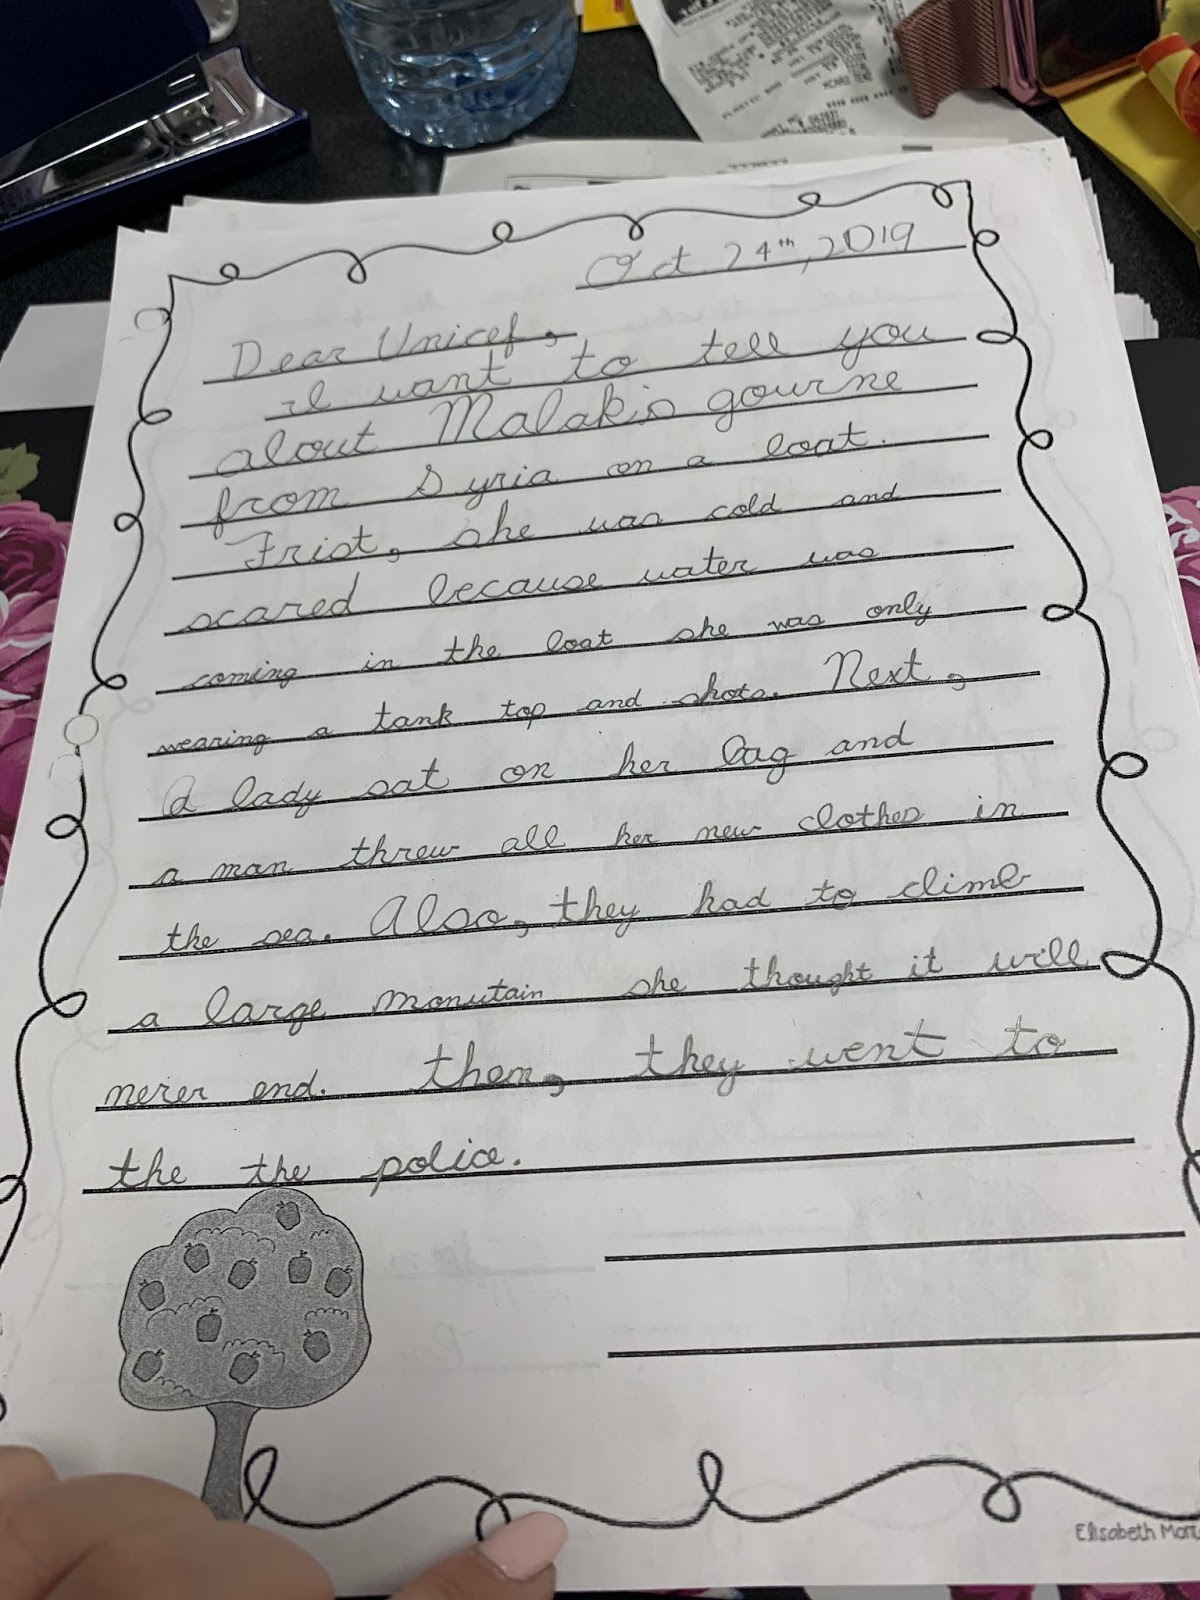 Oct 24th, 2019
Dear Unicef,
I want to tell you
about Malak's gourne
from Syria on a boat.
Frist, she was cold and
scared because water was
coming in the boat she was only
wearing a tank top and shots. Next,
a lady sat on her bag and
a man threw all her new clothes in
the sea. Also, they had to climb
a large monutain she thought it will
never end. then, they went to
the the police.
Elisabeth